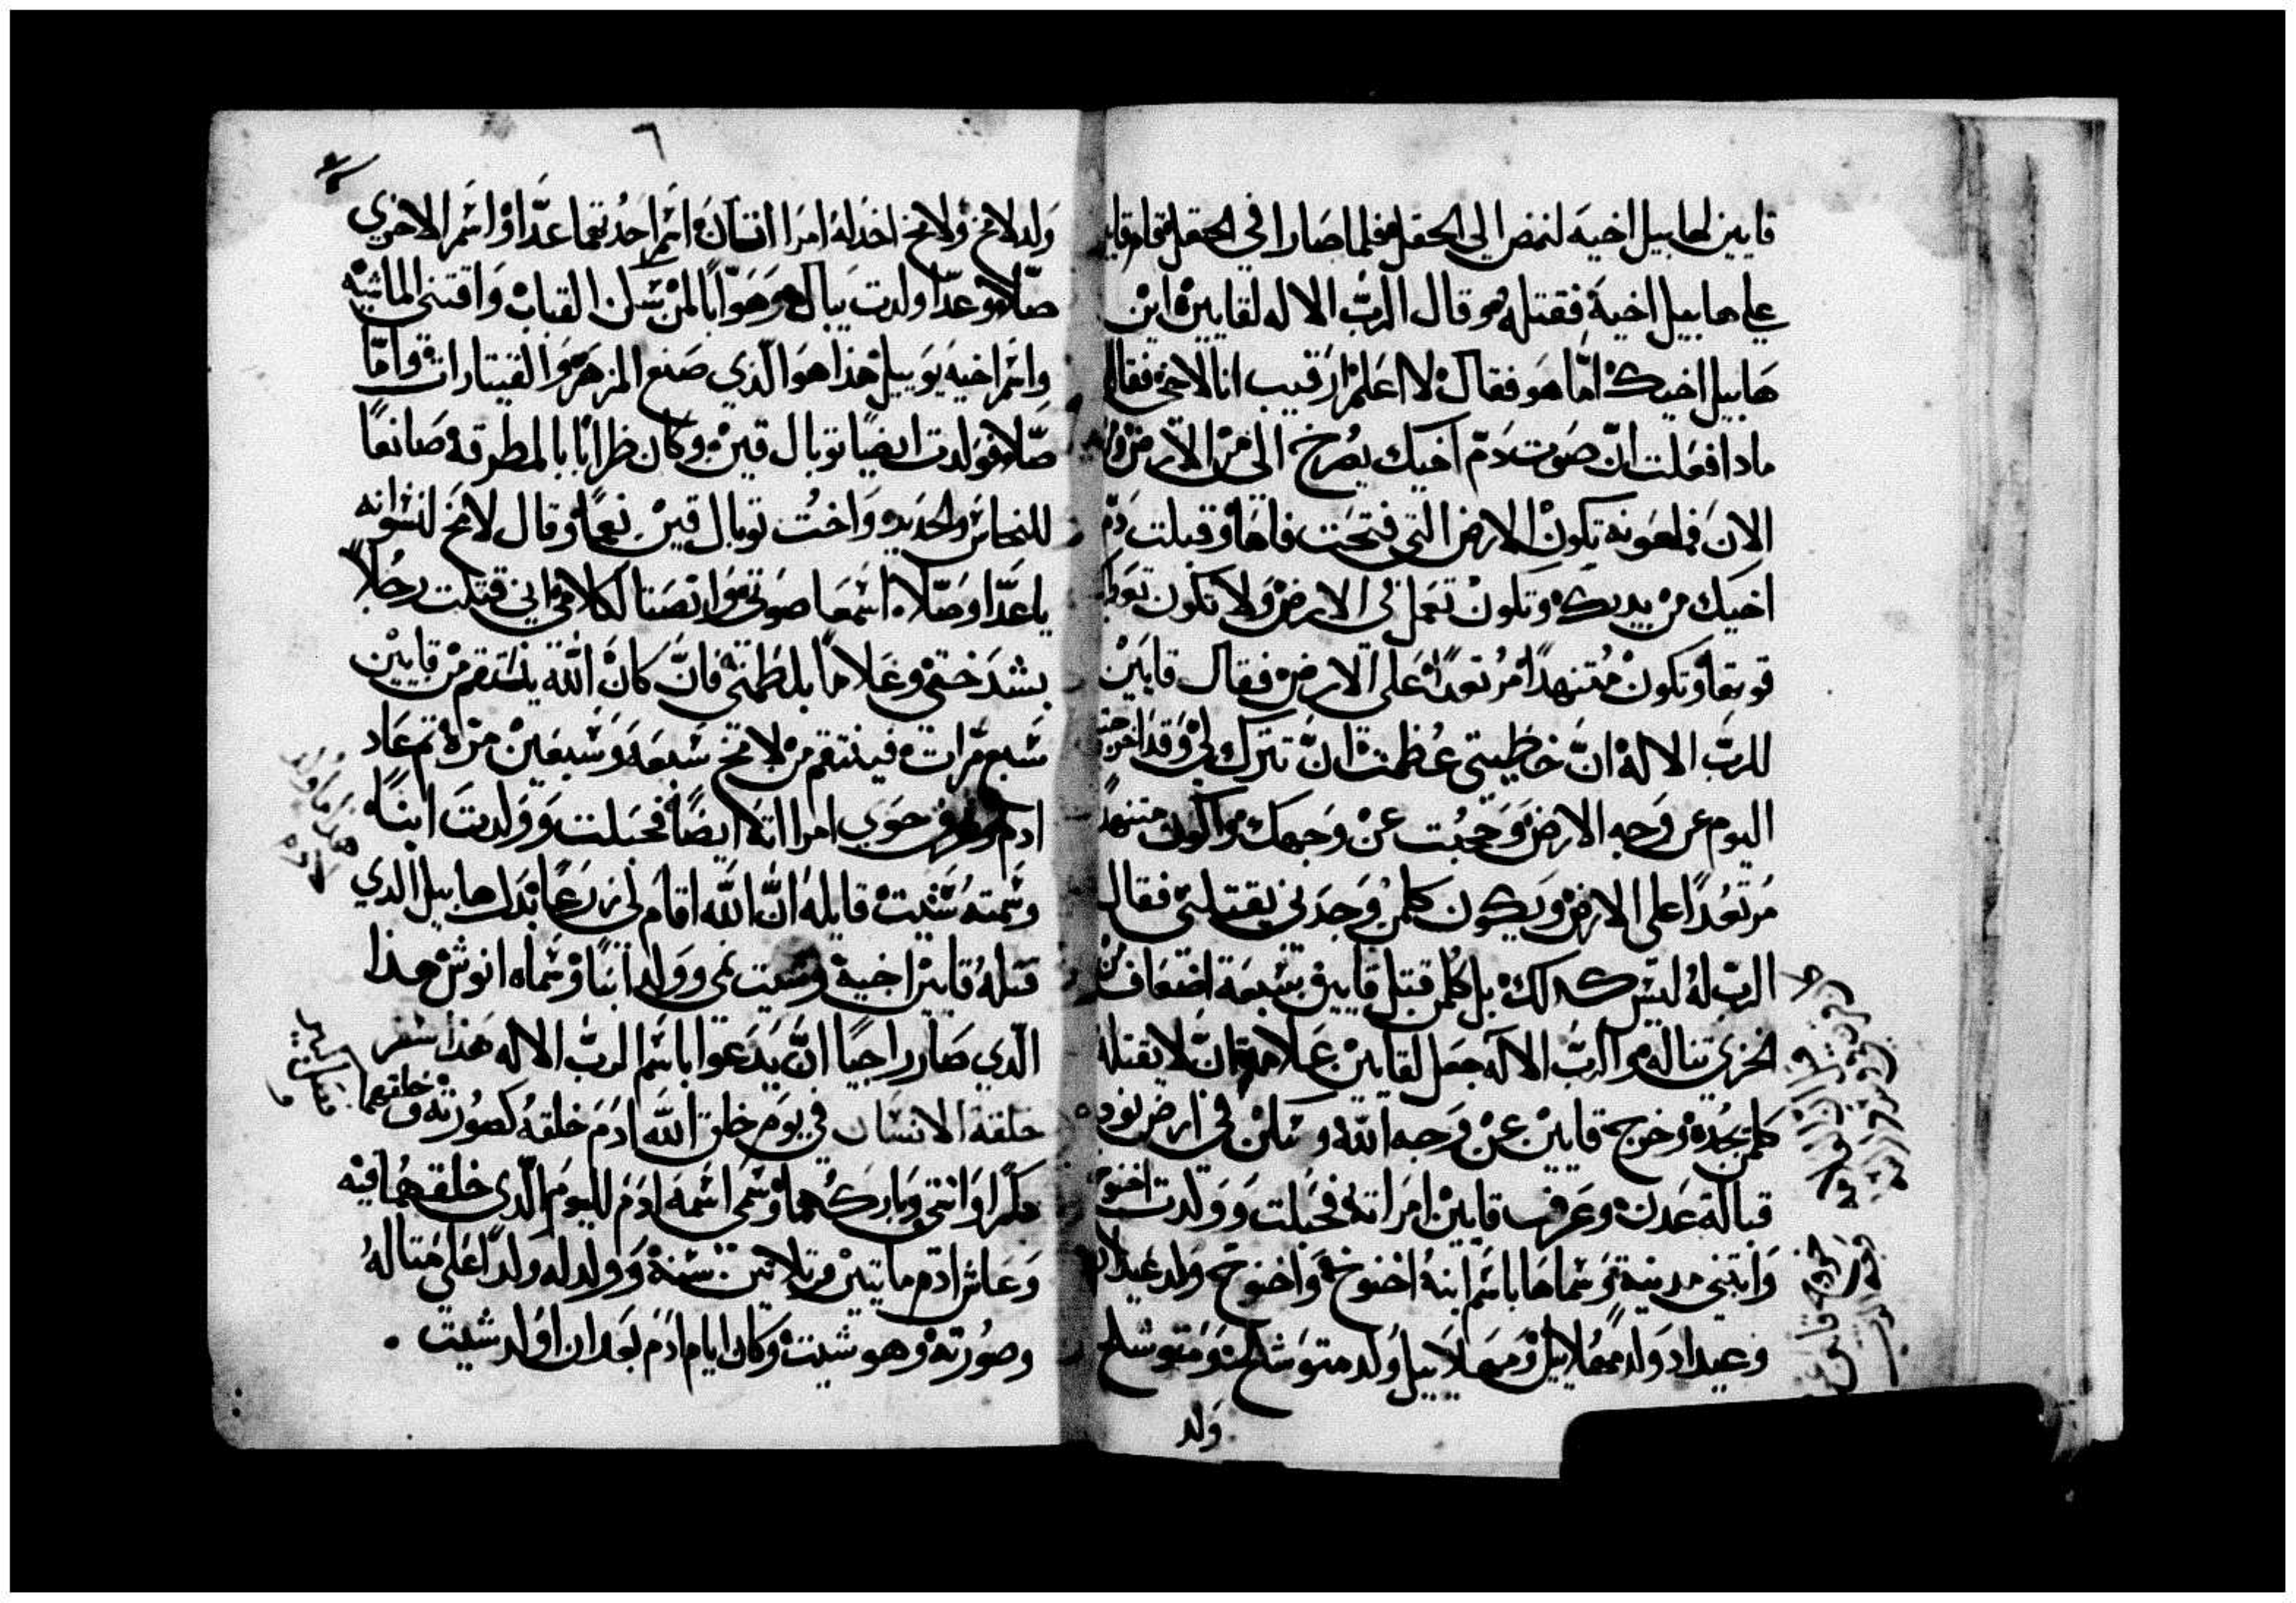 قايين لهابيل اخيه لنمضي الي الحقل فلما صارا في الحقل قام قايين
علي هابيل اخيه فقتله وقال الرب الاله لقايين اين
هابيل اخيك اما هو فقال لا اعلم ارقيب انا لاخي فقال
مادا فعلت ان صوت دم اخيك يصرخ الي من الارض
الان فملعونه تكون الارض التي فتحت فاها وقبلت دم
اخيك من يديك وتكون تعمل في الارض ولا تكون تعطيك
قوتها وتكون متنهدًا مرتعدًا علي الارض فقال قايين
للرب الاله ان خطيتي عظمت ان تترك لي وقد اخرجتني
اليوم عن وجه الارض وحجبت عن وجهك واكون متنهدًا
مرتعدًا علي الارض ويكون كلمن وجدني يقتلني فقال
الرب له ليس كدلك بل كلمن قتل قايين بسبعة اضعاف من
الخزي تناله والرب الاله جعل لقايين علامة ان لا يقتله
كلمن يجده وخرج قايين عن وجه الله وسكن في ارض نود
قبالة عدن وعرف قايين امراته فحبلت وولدت اخنوخ
وابتني مدينة وسماها باسم ابنه اخنوخ واخنوخ ولد عيداد
وعيداد ولد مهلاييل ومهلاييل ولد متوشلح ومتوشلح
ولد
٦
ولد لامخ ولامخ اخد له امراتان اسم احدتهما عدا واسم الاخري
صلا وعدا ولدت يبال هو هو ابا لمن سكن القباب واقتني الماشيه
واسم اخيه يوبيل هذا هو الذي صنع المزهر والقيتارات واما
صلا فولدت ايضا توبال قين وكان ظرابا بالمطرقه صانعا
للنحاس والحديد واخت توبال قين نعما وقال لامخ لنسوانه
يا عدا وصلا اسمعا صوتي وانصتا لكلامي اني قتلت رجلا
بشدختي وغلاما بلطمتي فان كان الله ينتقم من قايين
سبع مرات فينتقم من لامخ سبعه وسبعين مرة ثم عاد
ادم وعرف حوي امراته ايضا فحبلت وولدت ابنا
وسمته شيت قايله ان الله اقام لي زرعا بدل هابيل الدي
قتله قايين اخيه وشيت نمي وولد ابنا وسماه انوش هذا
الذي صار راجيا ان يدعوا باسم الرب الاله هذا سفر
خلقة الانسان في يوم خلق الله ادم خلقه كصورته وخلقهما
دكرا وانثي وباركهما وسمي اسمه ادم لليوم الذي خلقهما فيه
وعاش ادم مايتين وتلاتين سنة وولد له ولدا علي مثاله
وصورته وهو شيت وكان ايام ادم بعد ان اولد شيت